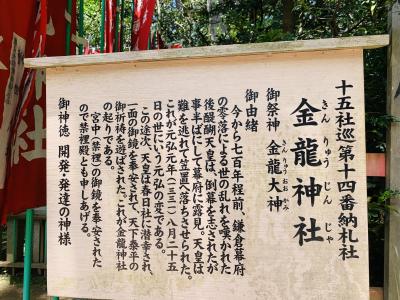 十五社巡第十四番納札社
金龍神社
きん りゅう じん じゃ
御祭神 金龍大神
きん りゅう おお かみ
御由緒
今から七百年程前、鎌倉幕府
の零落による世の乱れを嘆かれた
後醍醐天皇は、倒幕を志されたが
事半ばにして幕府に露見。天皇は
難を逃れて笠置へ落ちさせられた。
これが元弘元年（一三三一）八月二十五
日の世にいう元弘の変である。
この途次、天皇は春日社に潜幸され、
一面の御鏡を奉安されて、天下泰平の
御祈祷を遊ばされた。これが金龍神社
の起りである。
宮中（禁裡）の御鏡を奉安された
ので禁裡殿とも申しあげる。
御神徳 開発・発達の神様
神社